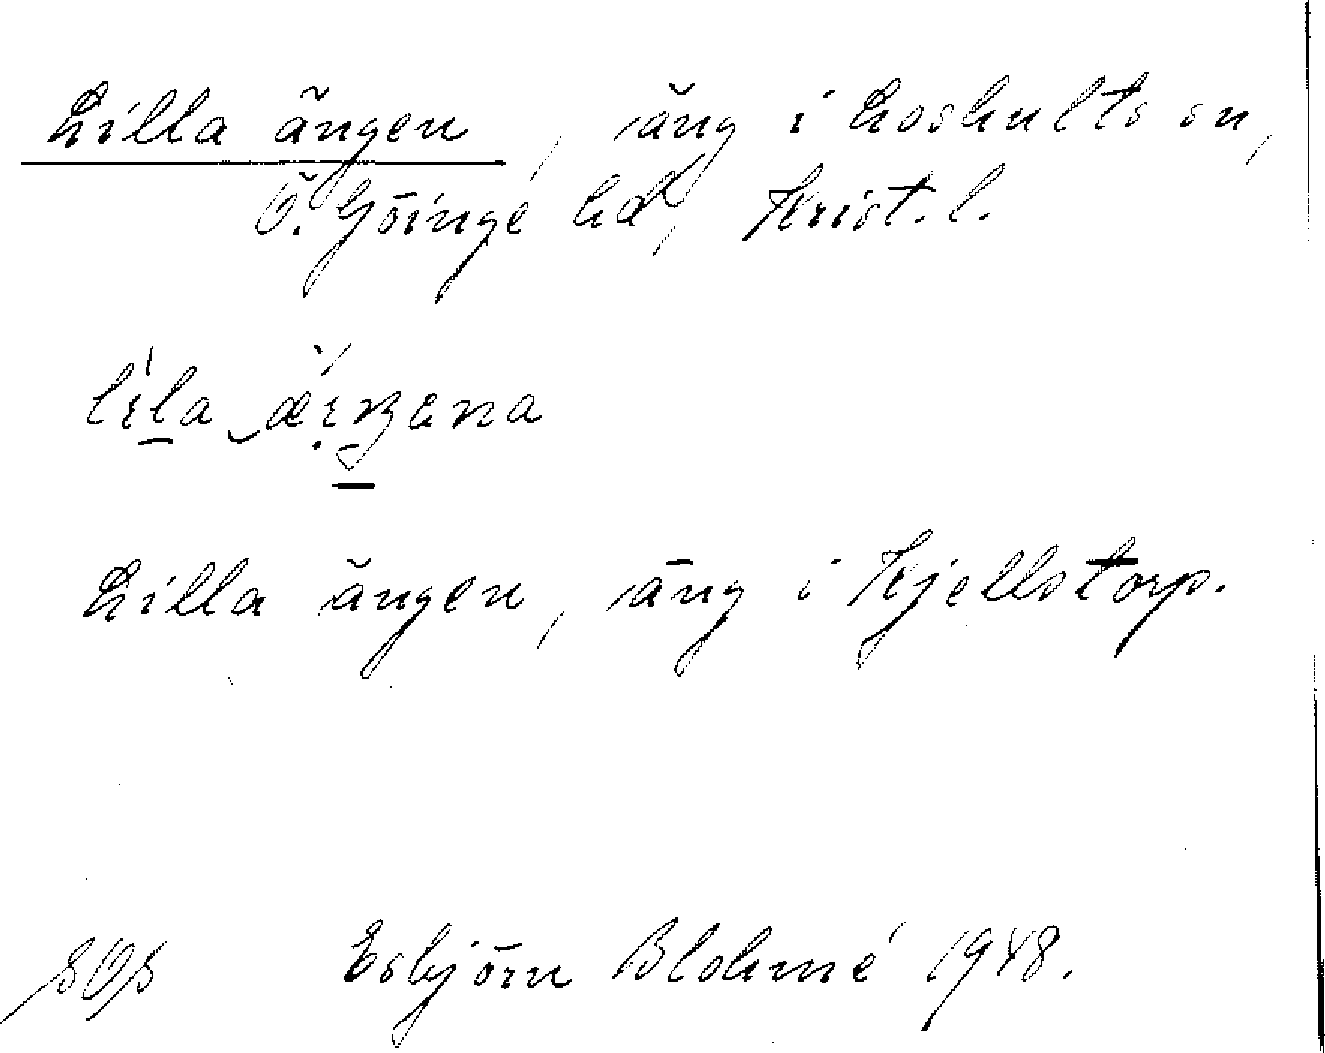 Lilla ängen, äng i Loshults sn,
Ö. Göinge hd, Krist. l.
Lilla ängen, äng i Kjellstorp.
Esbjörn Blohmé 1948.